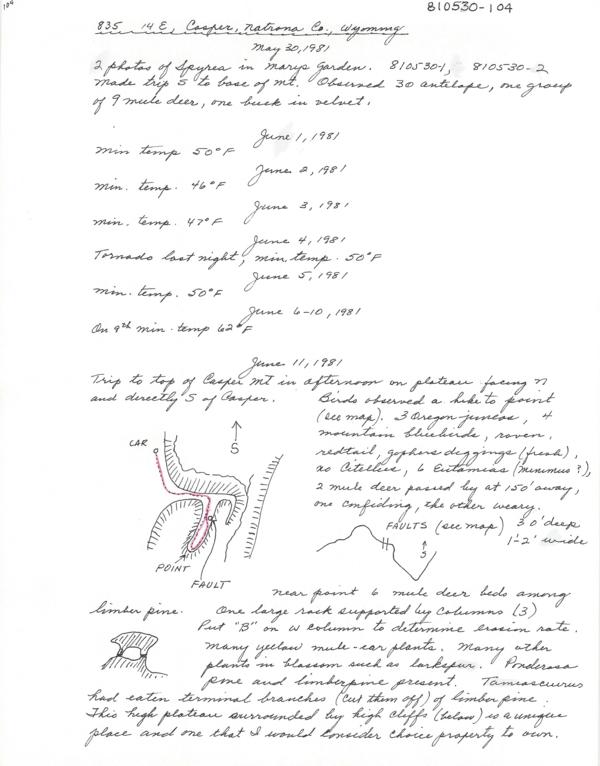 104
810530-104
835 14 E, Casper, Natrona Co., Wyoming
May 30, 1981
2 photos of Spyrea in Marys Garden. 810530-1, 810530-2
Made trip S to base of mt. Observed 30 antelope, one group
of 9 mule deer, one buck in velvet.
June 1, 1981
Min temp 50°F
June 2, 1981
Min. temp. 46°F
June 3, 1981
Min. temp. 47°F
June 4, 1981
Tornado last night, min. temp. 50°F
June 5, 1981
Min. temp. 50°F
June 6-10, 1981
On 9th min. temp 62°F
June 11, 1981
Trip to top of Casper Mt in afternoon on plateau facing N
and directly S of Casper.
Birds observed a hike to point
(see map). 3 Oregon juncos, 4
mountain bluebirds, raven,
redtail, gophers diggings (fresh),
no Citellus, 6 Eutamias (minimus?),
2 mule deer passed by at 150' away,
one confiding, the other weary.
CAR
S
POINT
FAULT
FAULTS (see map) 30' deep
1-2' wide
S
near point 6 mule deer beds among
limber pine. One large rock supported by columns (3)
Put "B" on W column to determine erosion rate.
Many yellow mule-ear plants. Many other
plants in blossom such as larkspur. Ponderosa
pine and limberpine present. Tamiasciurus
had eaten terminal branches (cut them off) of limber pine.
This high plateau surrounded by high cliffs (below) is a unique
place and one that I would consider choice property to own.